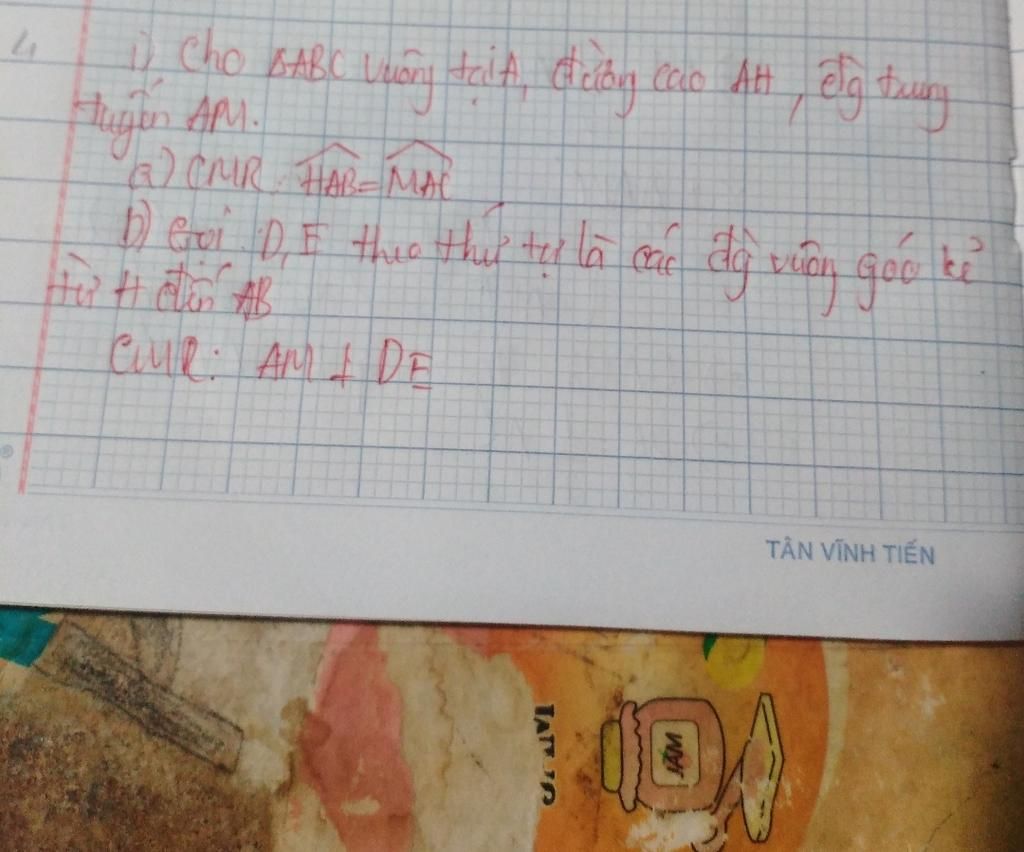 i) Cho ΔABC vuông tại A, đường cao AH, đg trung
tuyến AM.
a) CMR: HAB = MAC
b) Gọi D, E theo thứ tự là các đg vuông góc kẻ
từ H đến AB
CMR: AM ⊥ DE
TÂN VĨNH TIẾN
JAM